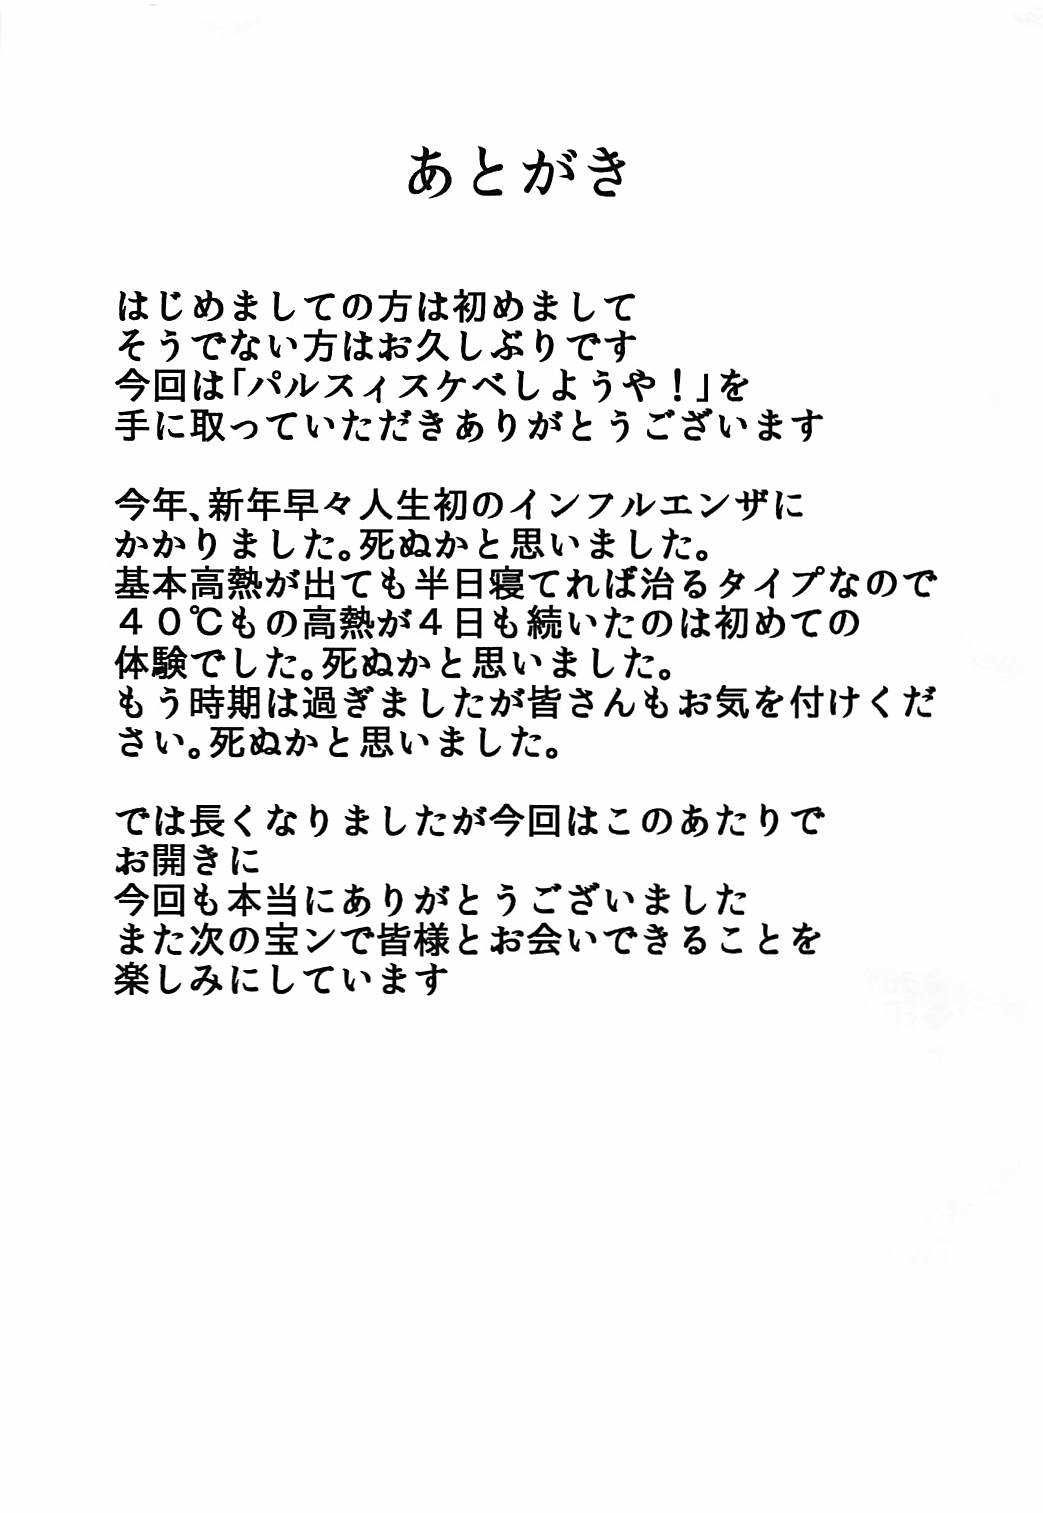 あとがき
はじめましての方は初めまして
そうでない方はお久しぶりです
今回は「パルスィスケベしようや！」を
手に取っていただきありがとうございます
今年、新年早々人生初のインフルエンザに
かかりました。死ぬかと思いました。
基本高熱が出ても半日寝てれば治るタイプなので
４０℃もの高熱が４日も続いたのは初めての
体験でした。死ぬかと思いました。
もう時期は過ぎましたが皆さんもお気を付けくだ
さい。死ぬかと思いました。
では長くなりましたが今回はこのあたりで
お開きに
今回も本当にありがとうございました
また次の宝ンで皆様とお会いできることを
楽しみにしています